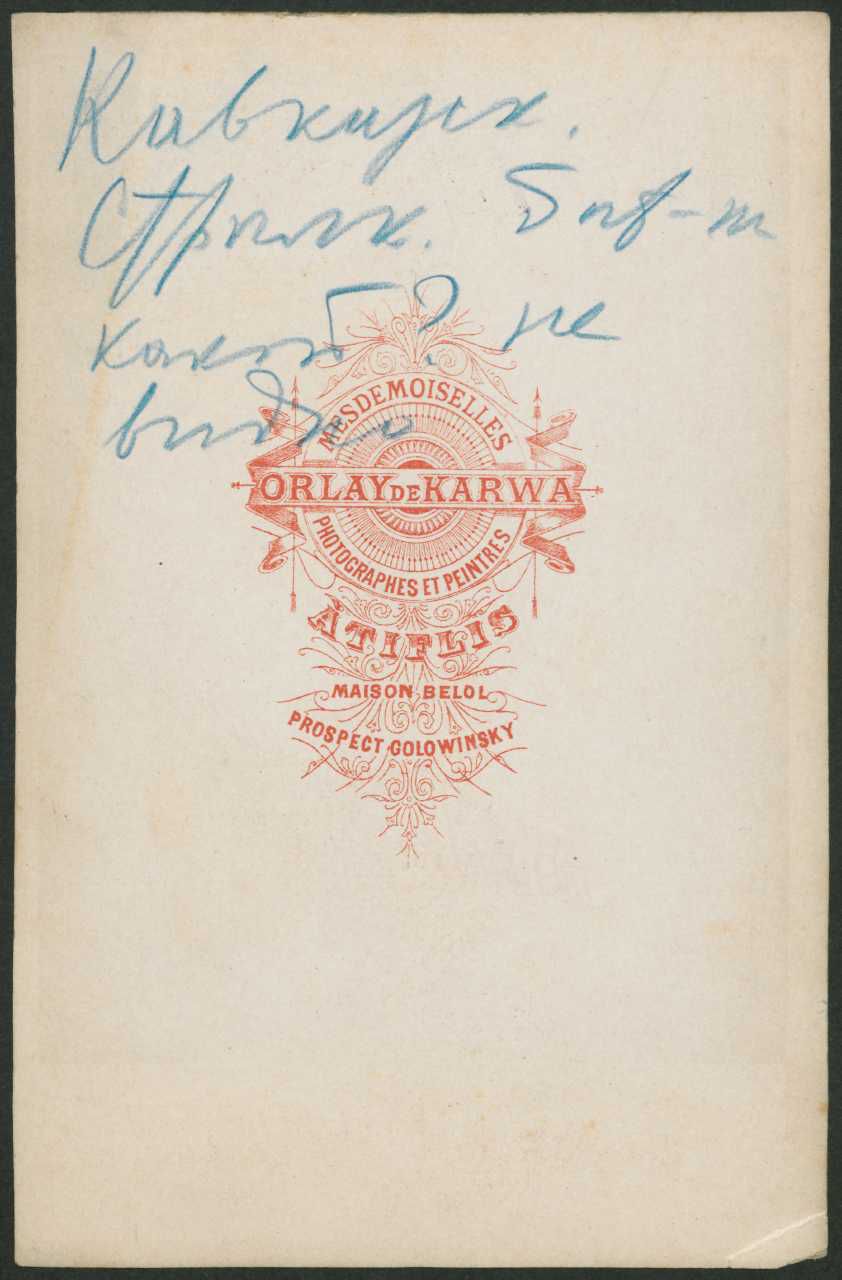 Кавказск.
Стрелк. бат-н
какой? не
видно
MESDEMOISELLES
ORLAY DE KARWA
PHOTOGRAPHES ET PEINTRES
À TIFLIS
MAISON BELOL
PROSPECT GOLOWINSKY